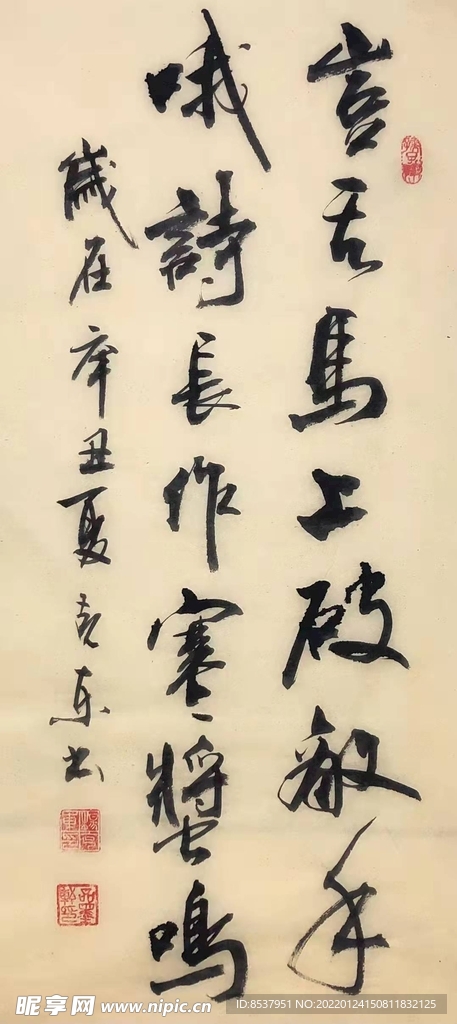 豈无馬上破敵手
哦詩長作寒螿鳴
歲在辛丑夏克东书
昵享网 www.nipic.cn
ID:8537951 NO:20220124150811832125